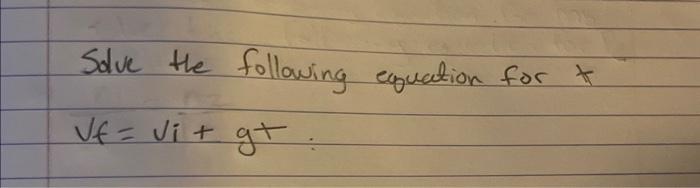 Solve the following equation for t
Vf = Vi + gt.